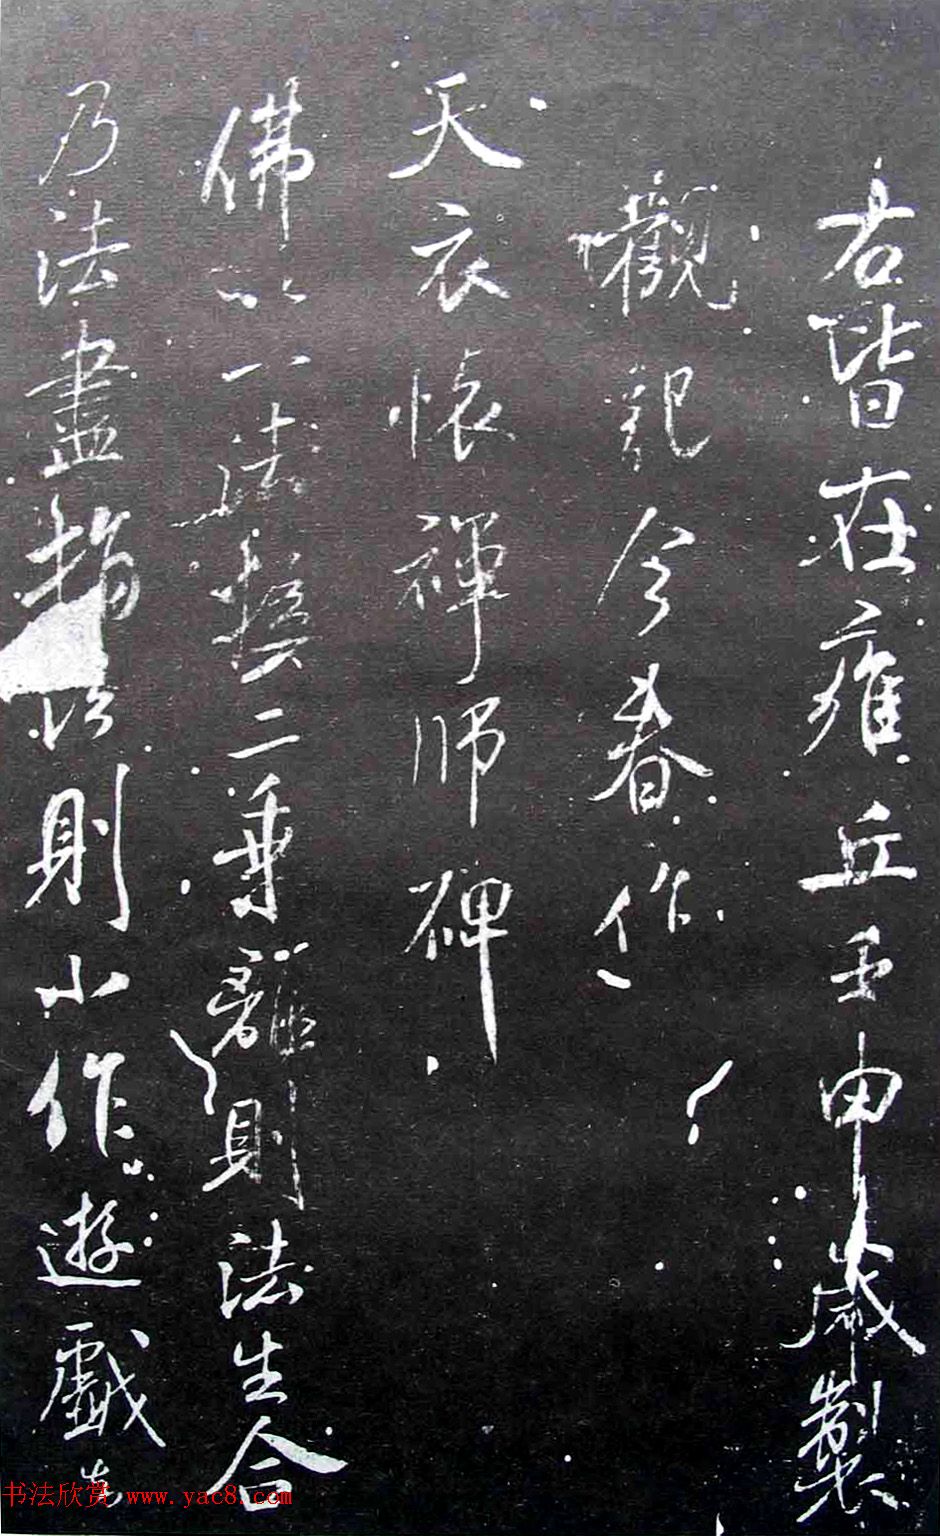 右皆在雍丘壬申歲製
觀記今春作
天衣懷禪師碑
佛以一法攝二乘離則法生合
乃法盡 以則小作遊戲
书法欣赏 www.yac8.com